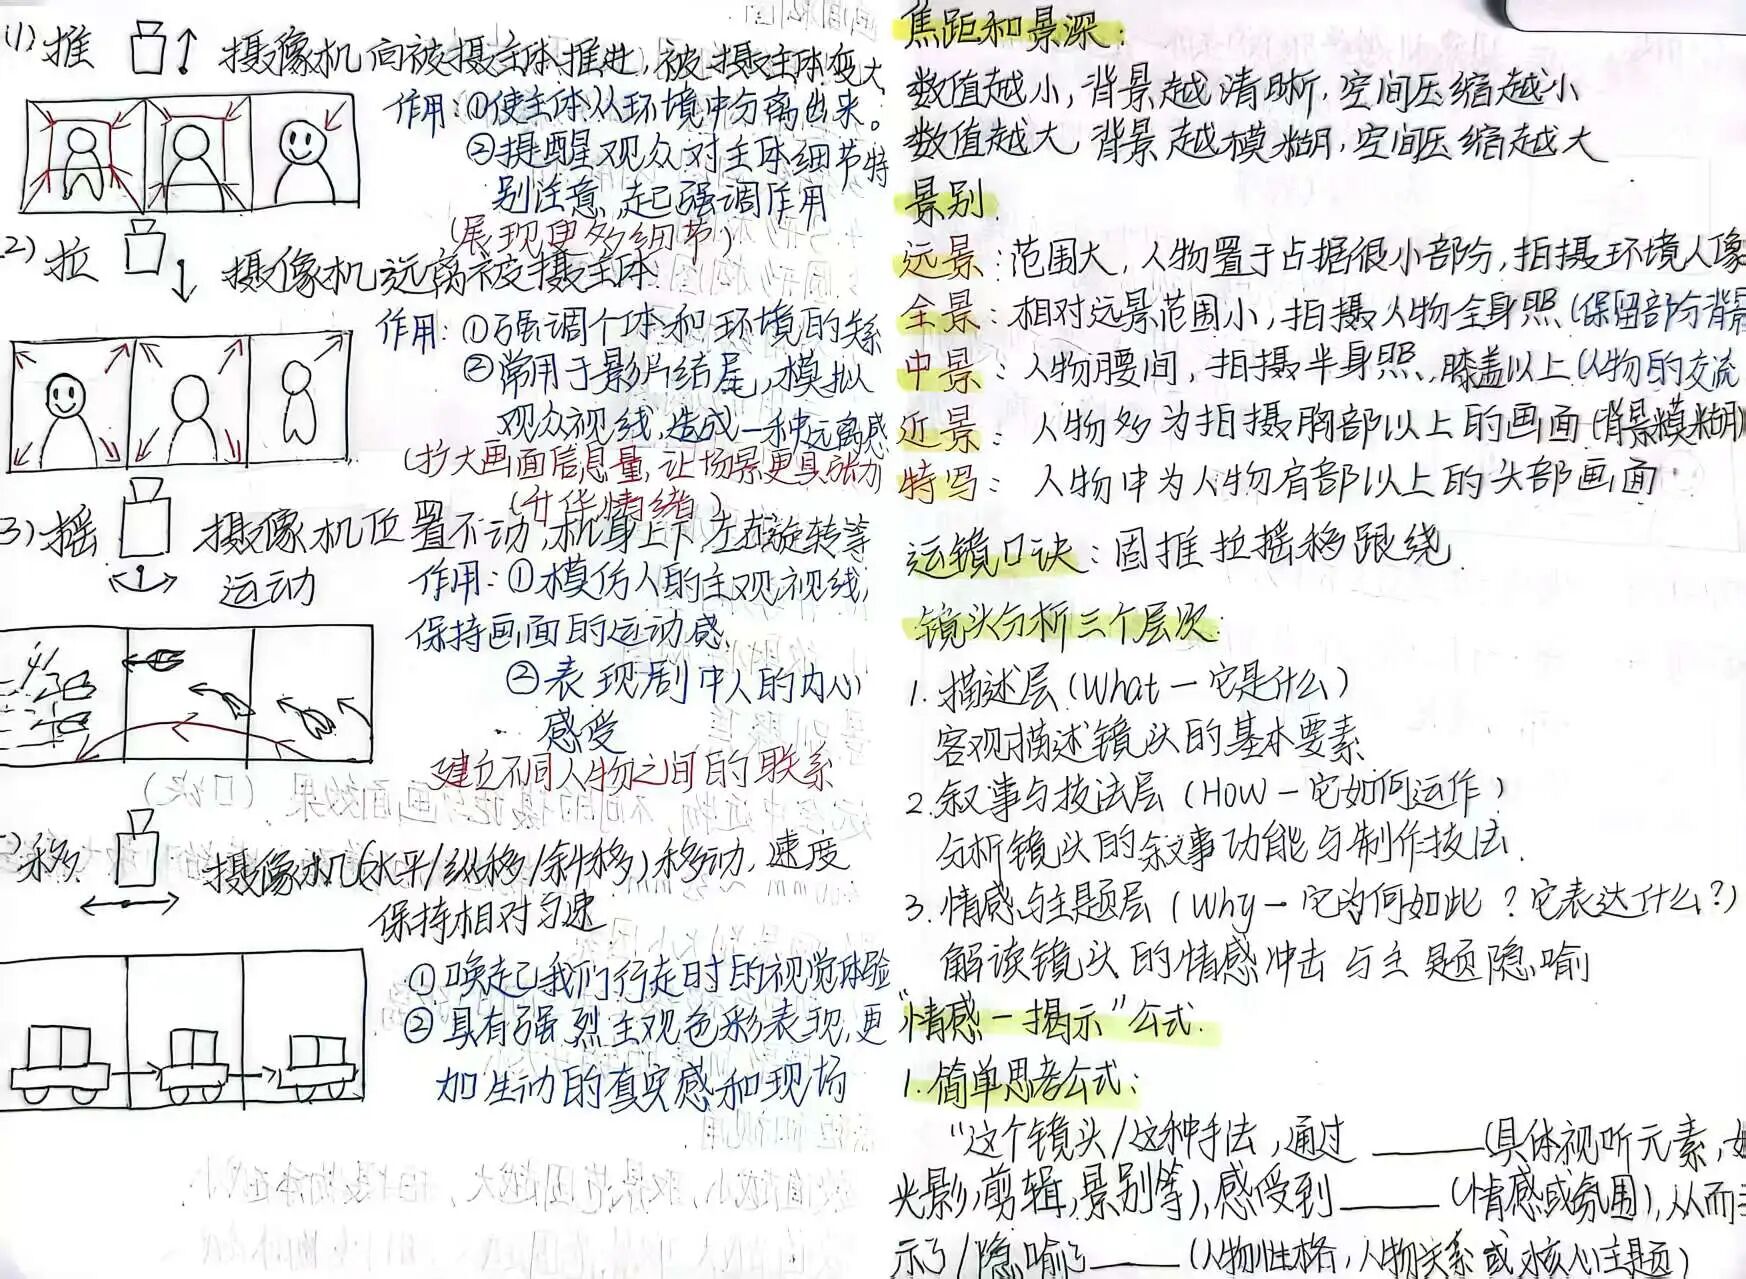 (1) 推 摄像机向被摄主体推进,被摄主体变大
作用:①使主体从环境中分离出来。
②提醒观众对主体细节特
别注意,起强调作用
(展现更多细节)
2) 拉 摄像机远离被摄主体
作用:①强调个体和环境的关系
②常用于影片结尾,模拟
观众视线,造成一种远离感
(扩大画面信息量,让场景更具张力
(升华情绪)
3) 摇 摄像机位置不动,机身上下,左右旋转等
运动
作用:①模仿人的主观视线,
保持画面的运动感
②表现剧中人的内心
感受
建立不同人物之间的联系
) 移 摄像机(水平/纵移/斜移)移动,速度
保持相对匀速
①唤起我们行走时的视觉体验
②具有强烈主观色彩表现,更
加生动的真实感和现场
焦距和景深:
数值越小,背景越清晰,空间压缩越小
数值越大,背景越模糊,空间压缩越大
景别
远景:范围大,人物置于占据很小部分,拍摄环境人像
全景:相对远景范围小,拍摄人物全身照(保留部分背景
中景:人物腰间,拍摄半身照,膝盖以上(人物的交流
近景:人物多为拍摄胸部以上的画面(背景模糊)
特写:人物中为人物肩部以上的头部画面
运镜口诀:固推拉摇移跟绕
镜头分析三个层次:
1. 描述层(What — 它是什么)
客观描述镜头的基本要素
2. 叙事与技法层(How — 它如何运作)
分析镜头的叙事功能与制作技法.
3. 情感与主题层(Why — 它为何如此?它表达什么?)
解读镜头的情感冲击与主题隐喻
"情感—揭示"公式.
1. 简单思考公式:
"这个镜头/这种手法,通过______(具体视听元素,如
光影,剪辑,景别等),感受到______(情感或氛围),从而
示了/隐喻了______(人物性格,人物关系或核心主题)